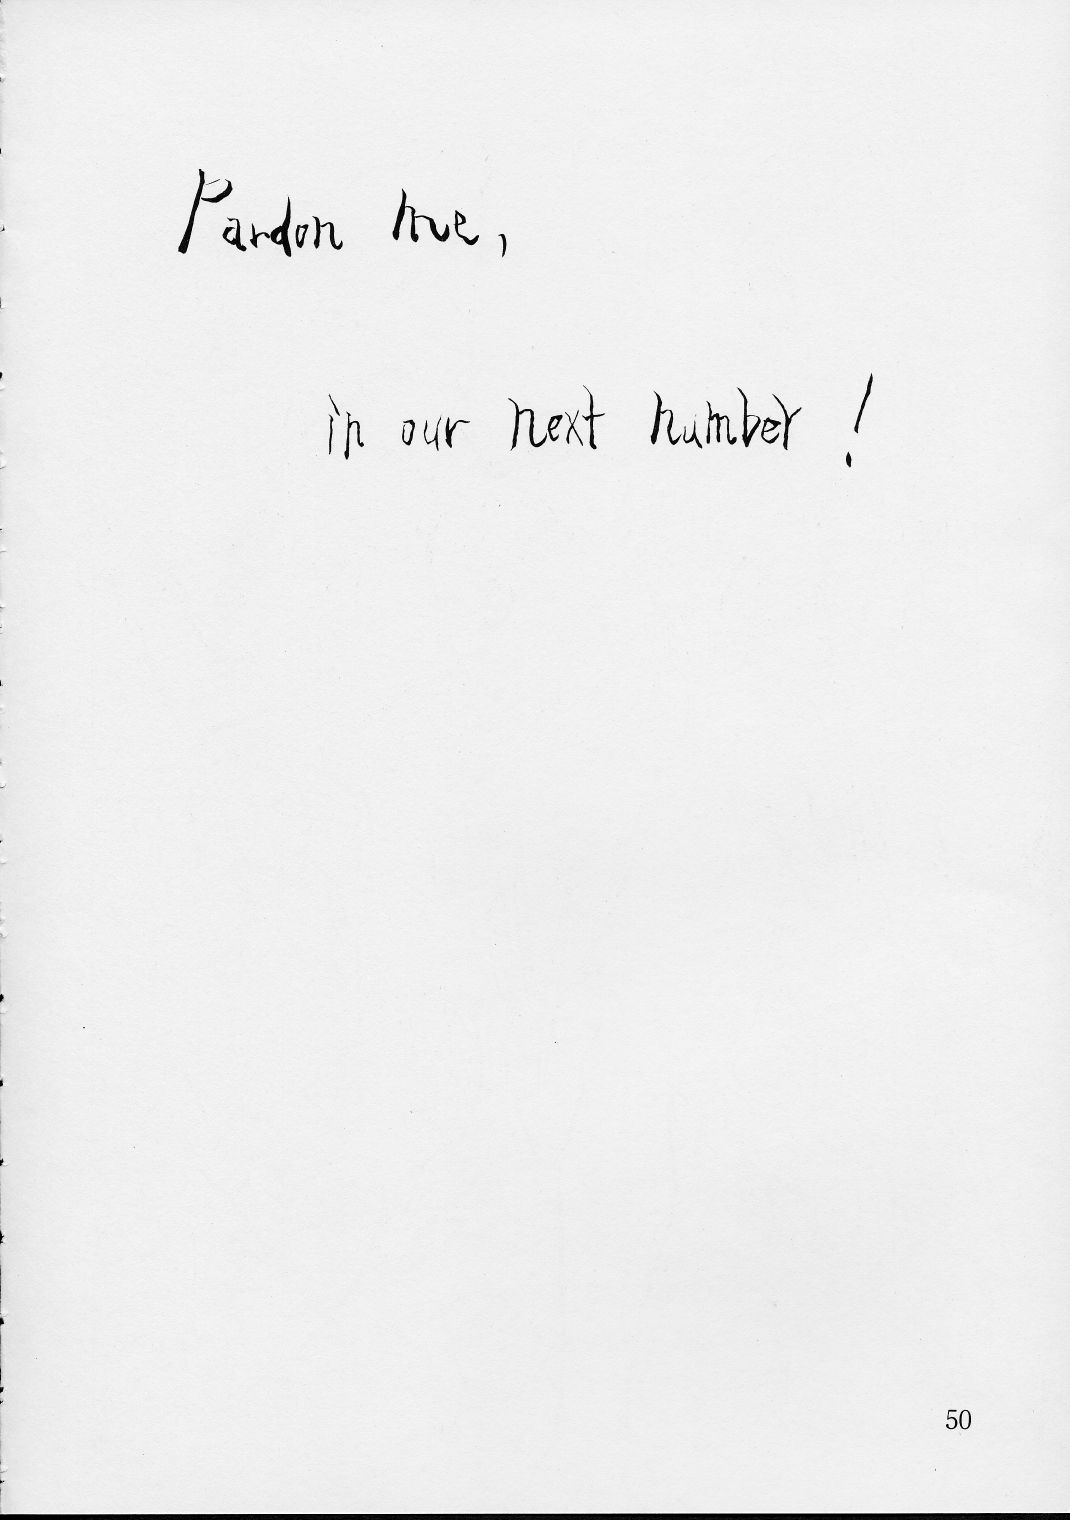 Pardon me,
in our next number!
50